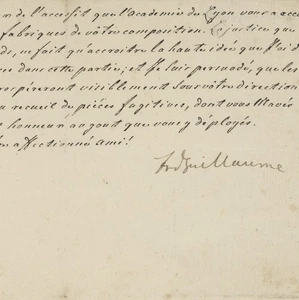 n de l'accessit que l'academie de Lyon vous a acc
fabriques de vôtre composition. La justice que
ds, ne fait qu'accroitre la haute idée que j'ai d
dans cette partie; et je suis persuadé, que les
viblement sous vôtre direction
recueil de pièces fugitives, dont vous m'avés
honneur au gout que vous y déployés.
affectionné ami!
FrdGuillaume